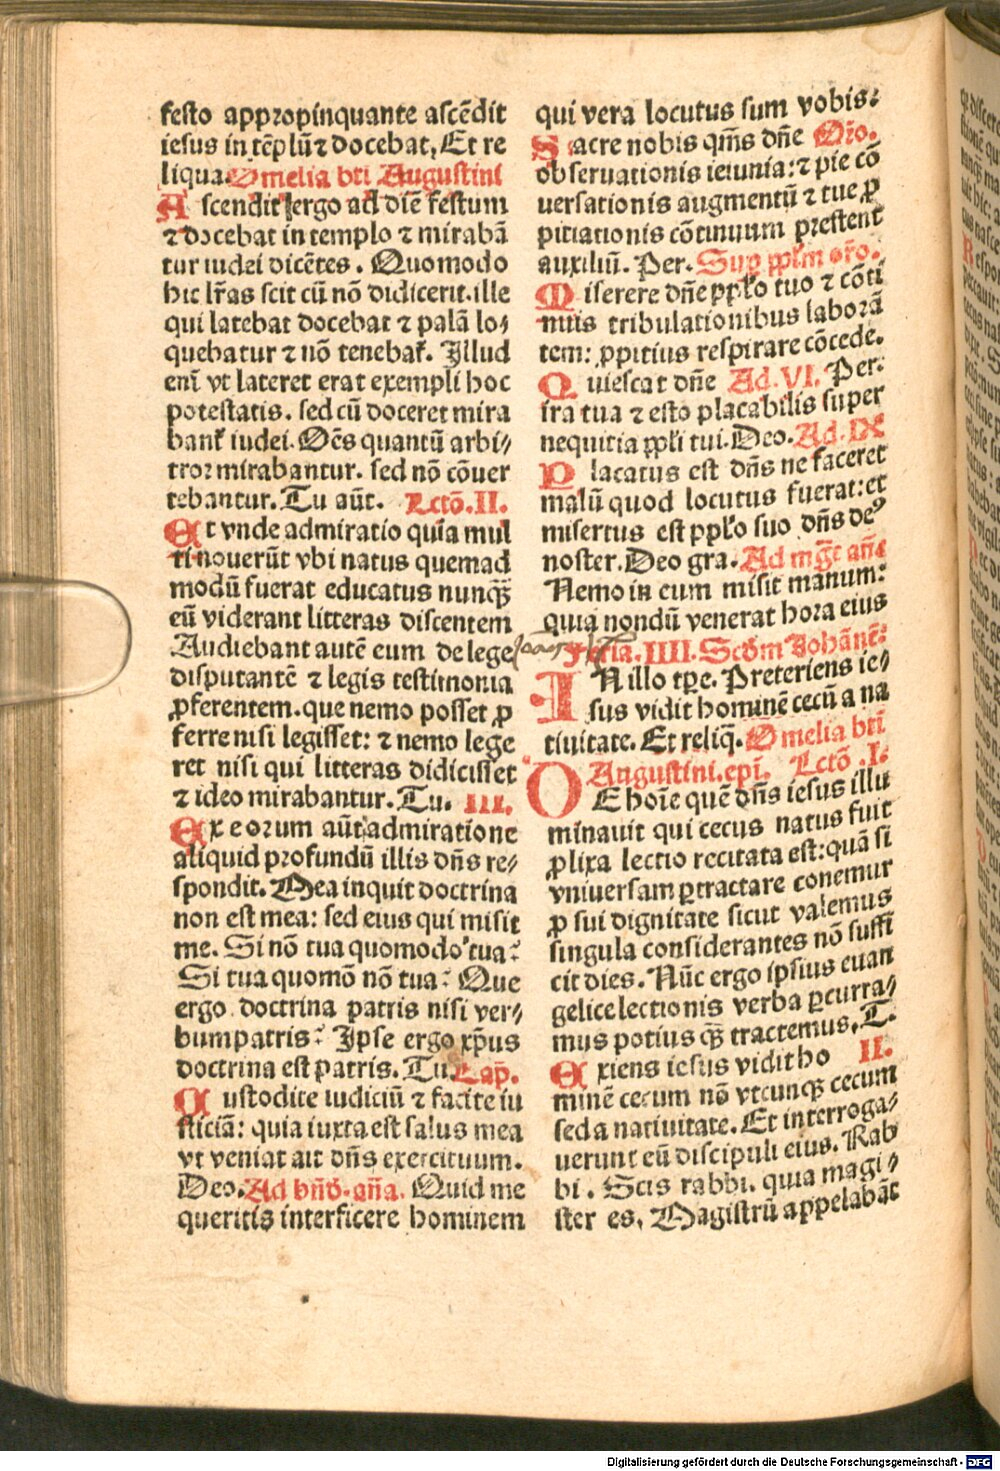 festo appropinquante ascēdit
iesus in tēplū ⁊ docebat, Et re
liqua. Omelia bti Augustini
Ascendit ergo ad diē festum
⁊ docebat in templo ⁊ mirabā
tur iudei dicētes. Quomodo
hic lr̄as scit cū nō didicerit. ille
qui latebat docebat ⁊ palā lo⸗
quebatur ⁊ nō tenebat̄. Illud
enī vt lateret erat exempli hoc
potestatis. sed cū doceret mira
bant̄ iudei. Oēs quantū arbi⸗
tror mirabantur. sed nō cōuer
tebantur. Tu aūt. Lctō. II.
Et vnde admiratio quia mul
ti nouerūt vbi natus quemad
modū fuerat educatus nunqꝫ
eū viderant litteras discentem
Audiebant autē eum de lege
disputantē ⁊ legis testimonia
ꝓferentem. que nemo posset ꝓ
ferre nisi legisset: ⁊ nemo lege
ret nisi qui litteras didicisset
⁊ ideo mirabantur. Tu. III.
Ex eorum aūt admiratione
aliquid profundū illis dn̄s re⸗
spondit. Mea inquit doctrina
non est mea: sed eius qui misit
me. Si nō tua quomodo tua?
Si tua quomō nō tua? Que
ergo doctrina patris nisi ver⸗
bum patris? Ipse ergo xp̄us
doctrina est patris. Tu. Cap̄.
Custodite iudiciū ⁊ facite iu
sticiā: quia iuxta est salus mea
vt veniat ait dn̄s exercituum.
Deo. Ad bn̄d. an̄a. Quid me
queritis interficere hominem
qui vera locutus sum vobis.
Sacre nobis qm̄s dn̄e Orō.
obseruationis ieiunia: ⁊ pie cō
uersationis augmentū ⁊ tue ꝓ
pitiationis cōtinuum prestent
auxiliū. Per. Suꝑ ppl̄m orō.
Miserere dn̄e ppl̄o tuo ⁊ cōti
nuis tribulationibus laborā
tem: ꝓpitius respirare cōcede.
Quiescat dn̄e Ad. VI. Per.
ira tua ⁊ esto placabilis super
nequitia ppl̄i tui. Deo. Ad. IX
Placatus est dn̄s ne faceret
malū quod locutus fuerat: et
misertus est ppl̄o suo dn̄s deꝰ
noster. Deo gra. Ad mgc̄t an̄a
Nemo in eum misit manum:
quia nondū venerat hora eius
Feria. IIII. Scd̄m Johānē.
IN illo tꝑe. Preteriens ie⸗
sus vidit hominē cecū a na
tiuitate. Et reliq̄. Omelia bti
Augustini. epī. Lctō .I.
DE hoīe quē dn̄s iesus illu
minauit qui cecus natus fuit
ꝓlixa lectio recitata est: quā si
vniuersam ꝑtractare conemur
ꝓ sui dignitate sicut valemus
singula considerantes nō suffi
cit dies. Nūc ergo ipsius euan
gelice lectionis verba ꝑcurra⸗
mus potius qꝫ tractemus, T.
Exiens iesus vidit ho II.
minē cecum nō vtcunqꝫ cecum
sed a natiuitate. Et interroga⸗
uerunt eū discipuli eius. Rab
bi. Scis rabbi. quia magi⸗
ster es, Magistrū appelabāt